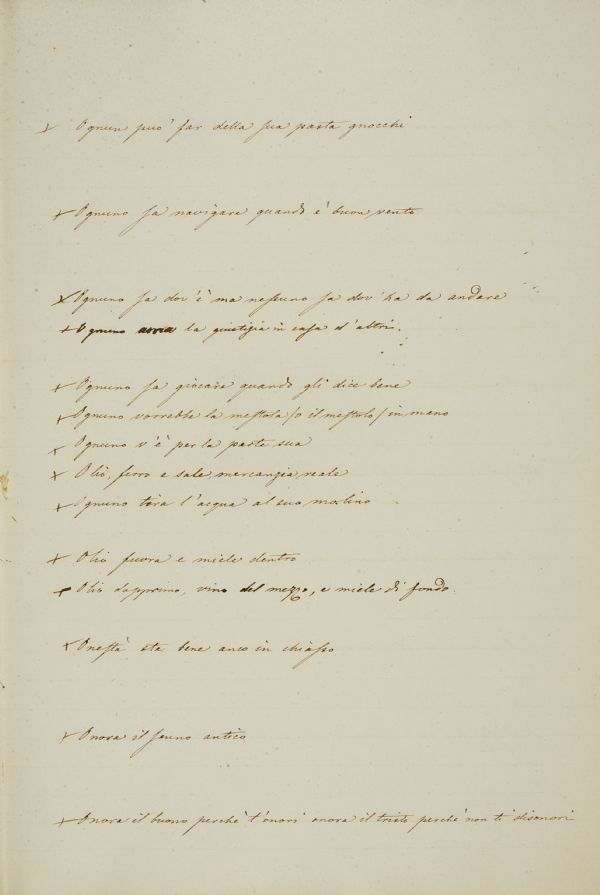 Ognun può far della sua pasta gnocchi
Ognuno sa navigare quando è buon vento
Ognuno sa dov'è ma nessuno sa dov'ha da andare
Ognuno ama la giustizia in casa d'altri.
Ognuno sa giocare quando gli dice bene
Ognuno vorrebbe la mestola /o il mestolo/ in mano
Ognuno v'è per la parte sua
Olio, ferro e sale, mercanzia reale
Ognuno tira l'acqua al suo molino
Olio fuora e miele dentro
Olio dapprimo, vino del mezzo, e miele di fondo.
Onestà sta bene anco in chiasso
Onora il senno antico
Onora il buono perchè t'onori onora il tristo perchè non ti disonori